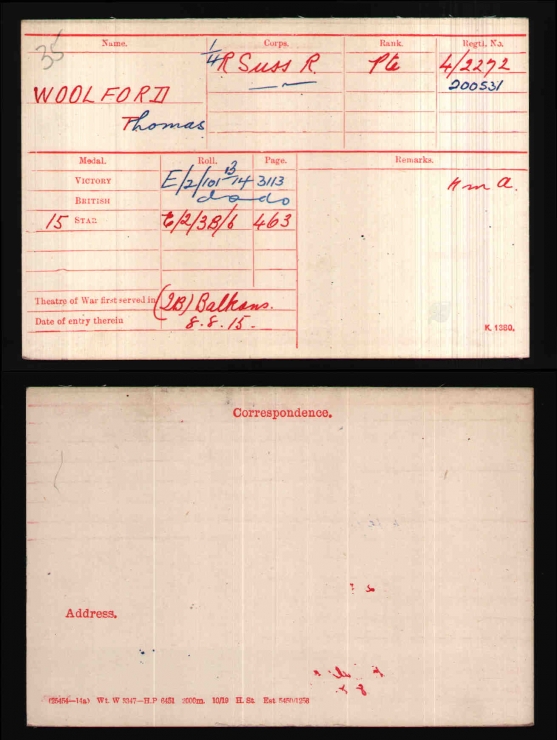 35
Name. Corps. Rank. Regtl. No.
1/4 R Suss R. Pte 4/2272
WOOLFORD 200531
Thomas
Medal. Roll. Page. Remarks.
VICTORY E/2/101 B 14 3113 H M A.
BRITISH do do
15 STAR E/2/3B/6 463
Theatre of War first served in (2B) Balkans.
Date of entry therein 8.8.15.
K. 1380.
Correspondence.
Address.
Wt. W 3347—H.P 6454 2000m. 10/19 H. St.